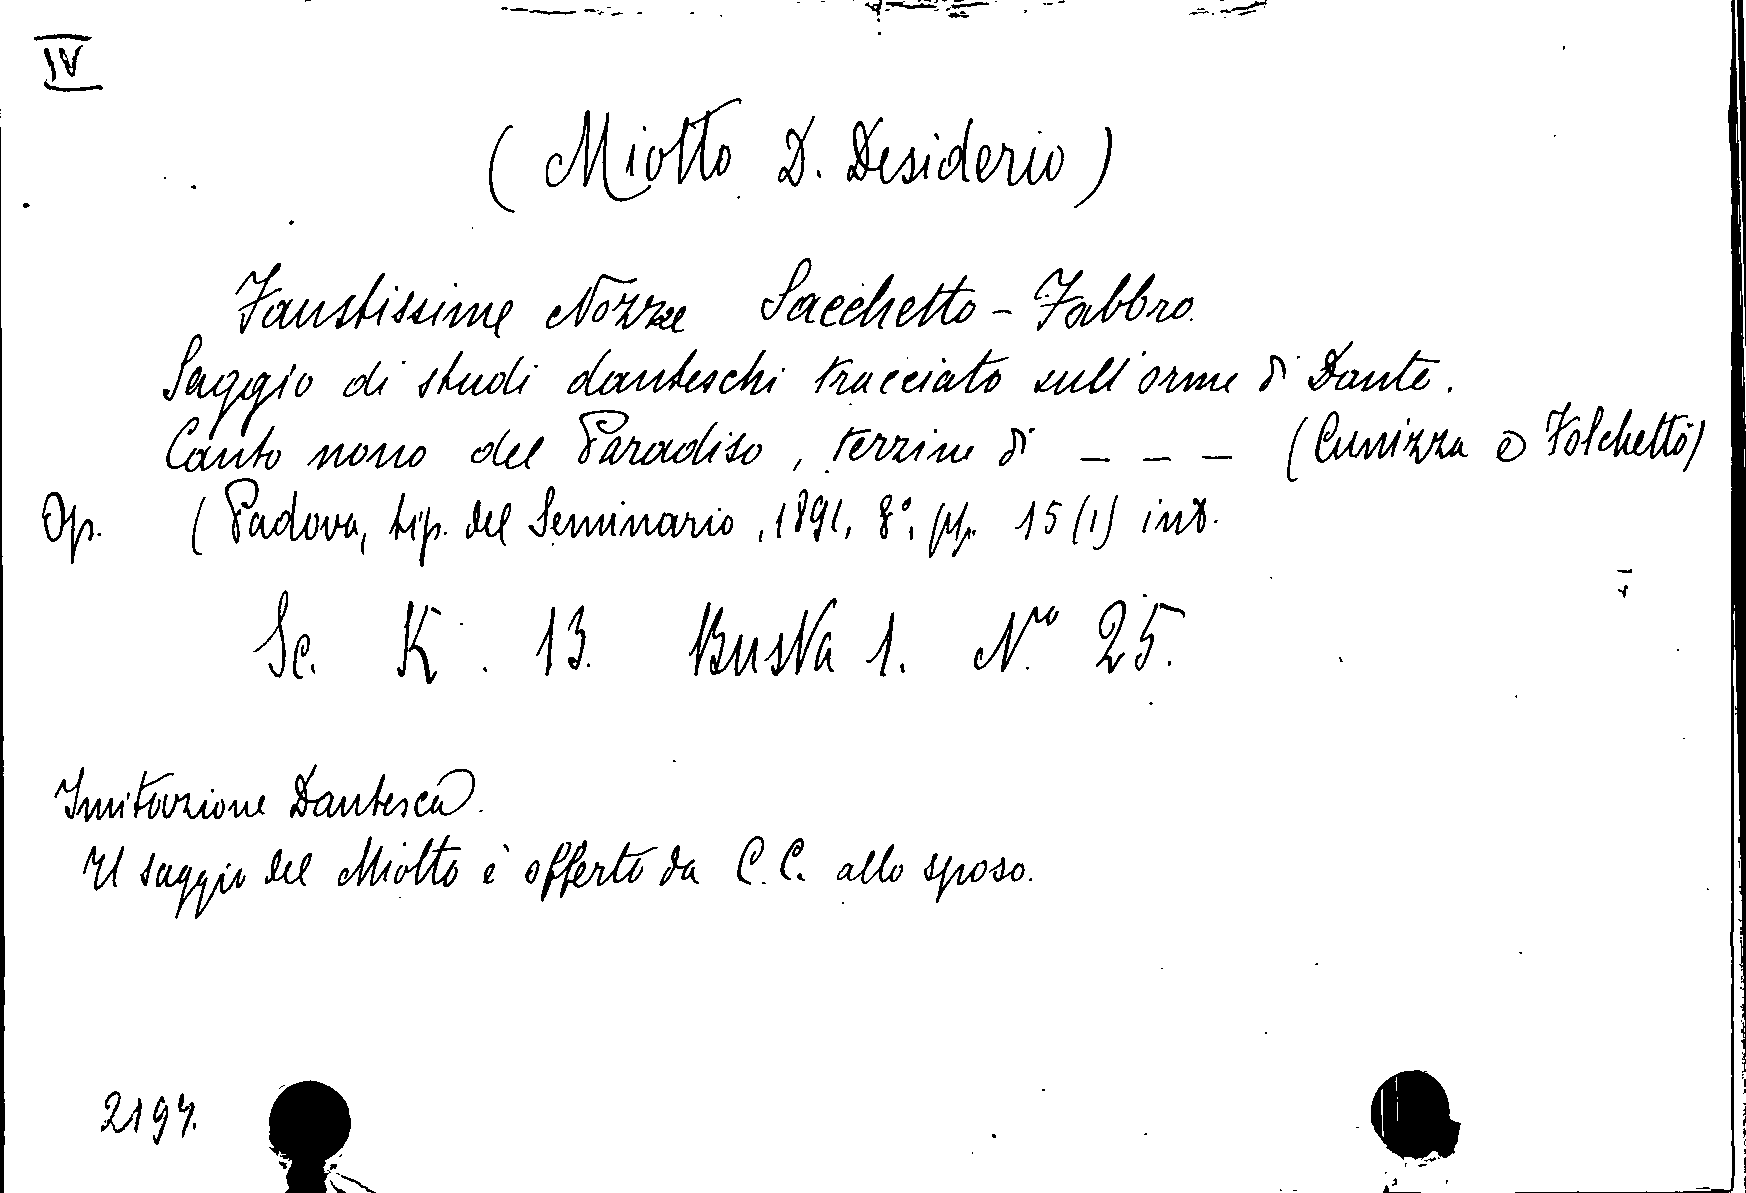 IV
(Miotto D. Desiderio)
Faustissime Nozze Sacchetto - Fabbro.
Saggio di studi danteschi tracciato sull'orme di Dante.
Canto nono del Paradiso, terzine di _ _ _ (Cunizza e Folchetto)
Op. (Padova, tip. del Seminario, 1891, 8°, pp. 15 (1) int.
Sc. K. 13. Busta 1. N.° 25.
Imitazione Dantesca.
Il saggio del Miotto è offerto da C.C. allo sposo.